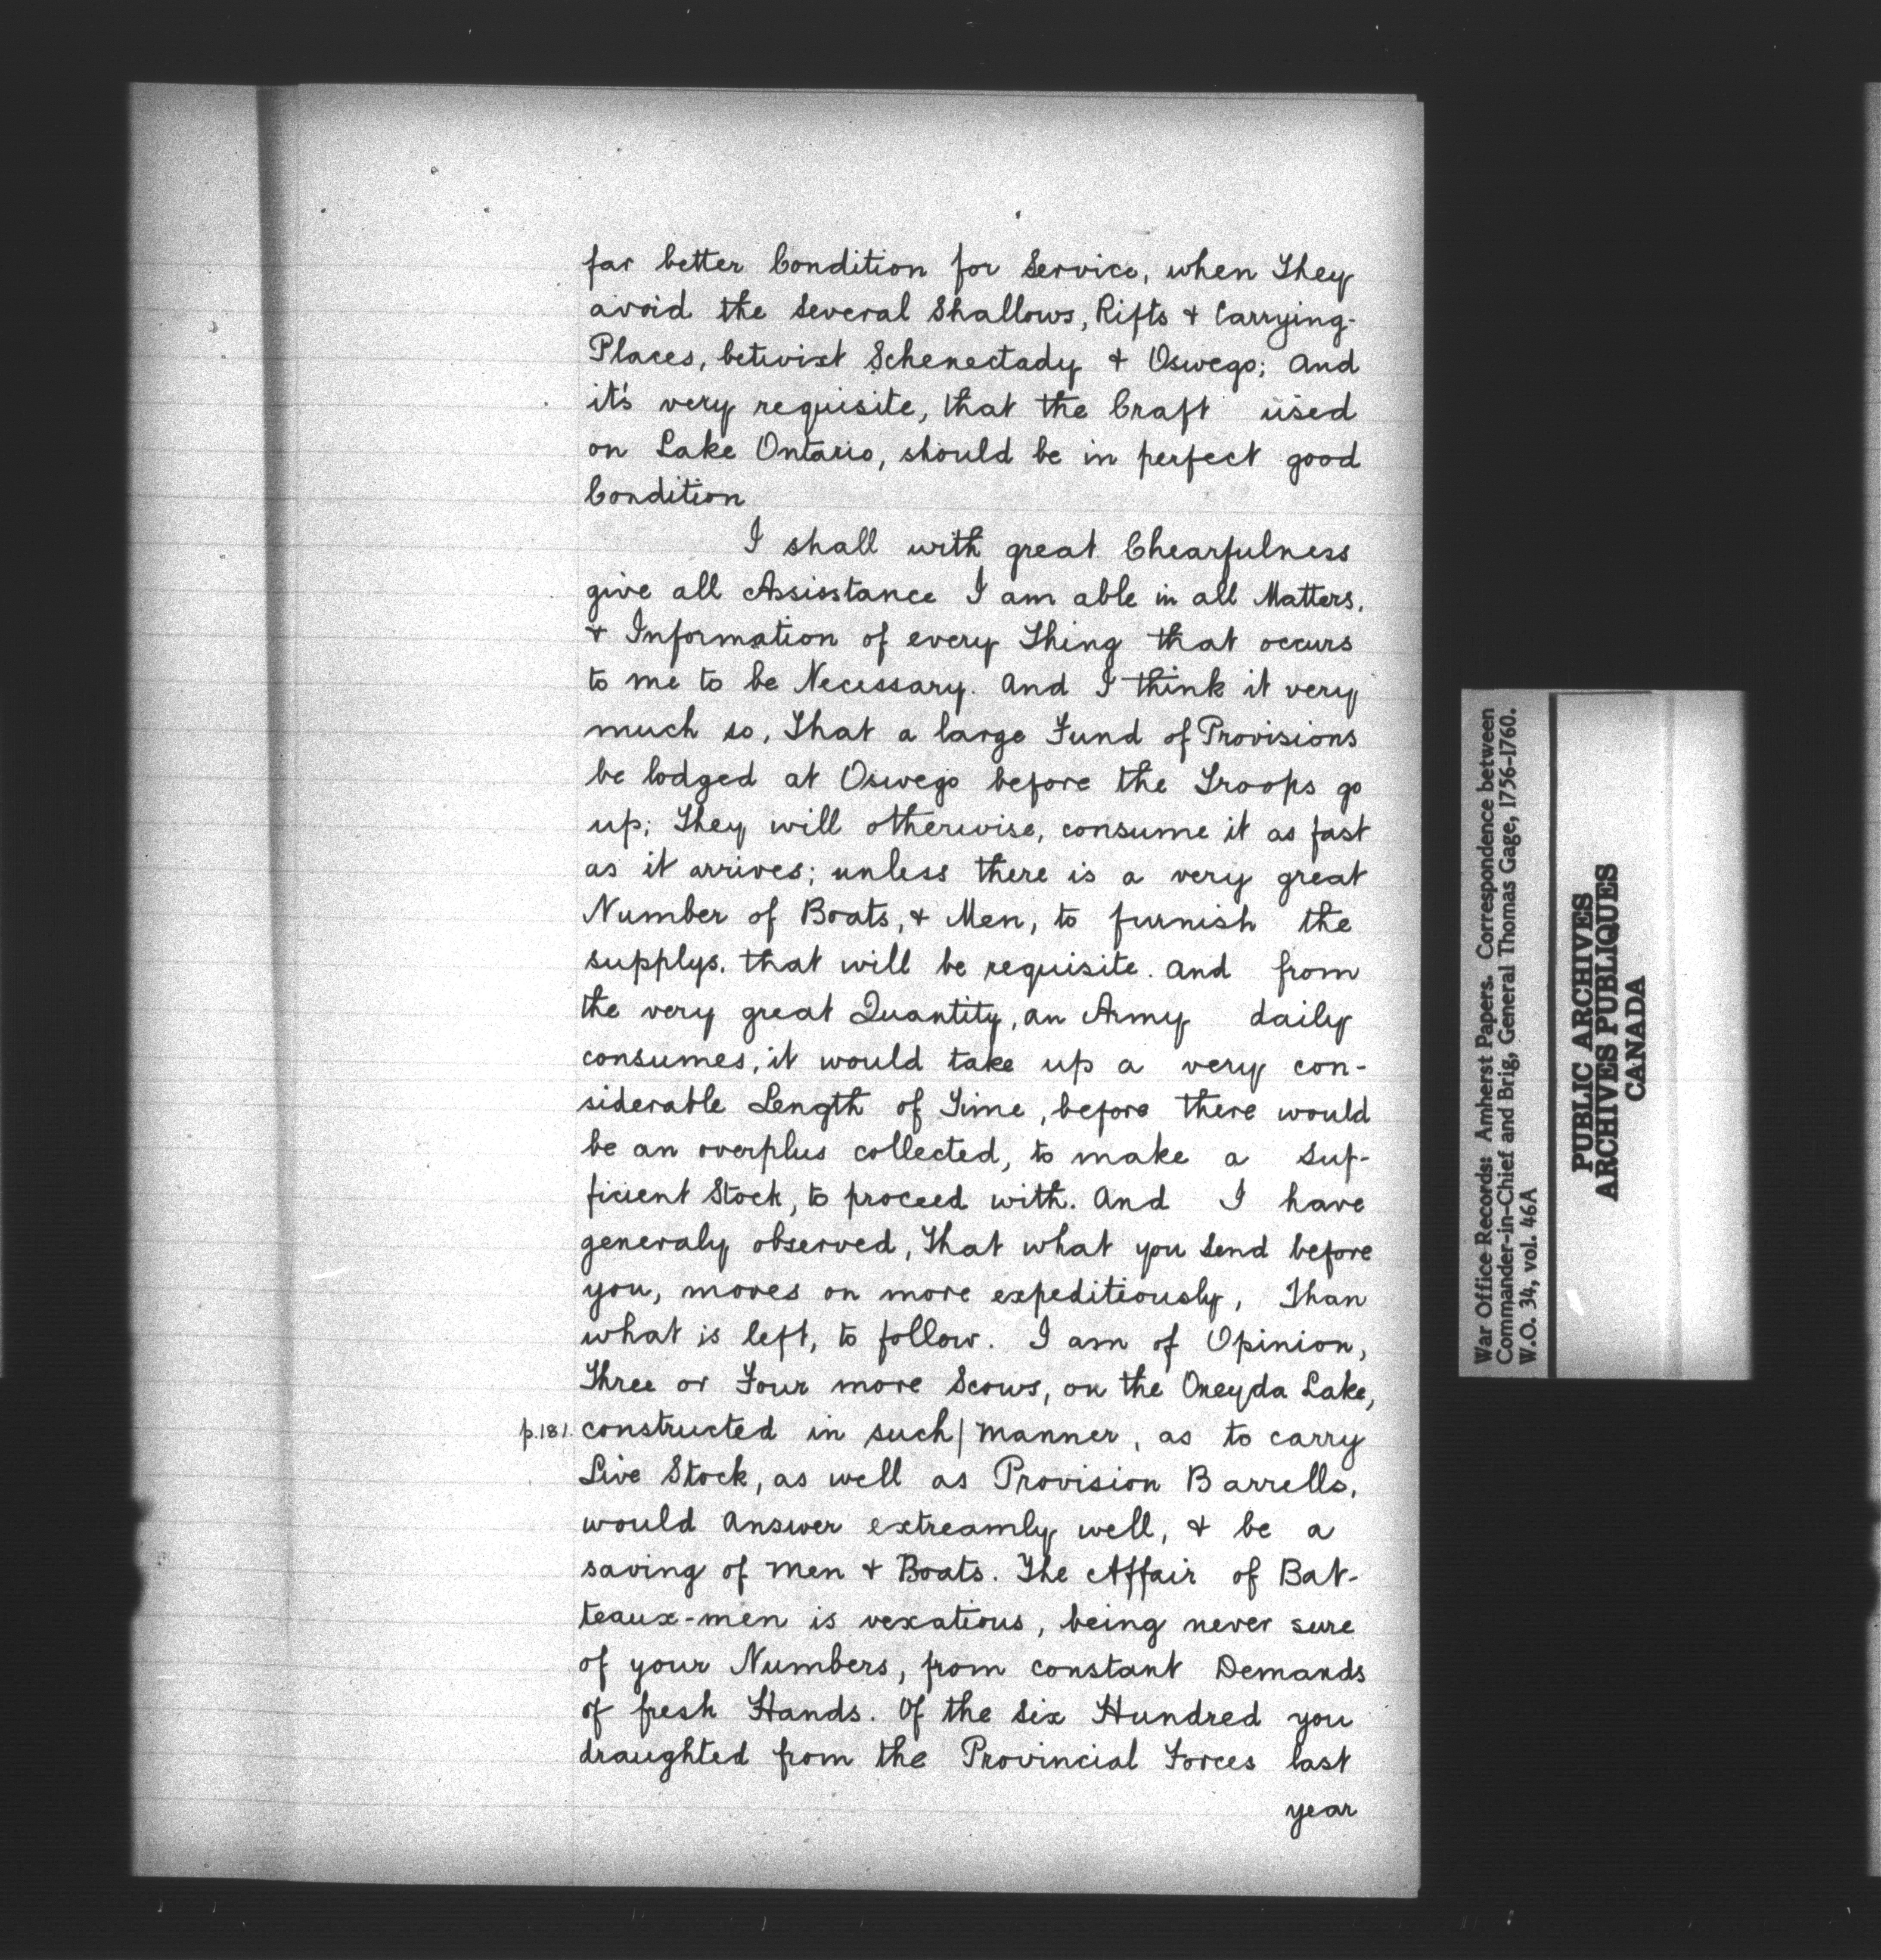 far better Condition for Service, when They
avoid the Several Shallows, Rifts & Carrying-
Places, betwixt Schenectady & Oswego; And
it's very requisite, that the Craft used
on Lake Ontario, should be in perfect good
Condition
I shall with great Chearfulness
give all Assisstance I am able in all Matters,
& Information of every Thing that occurs
to me to be Necessary. And I think it very
much so, That a large Fund of Provisions
be lodged at Oswego before the Troops go
up; They will otherwise, consume it as fast
as it arrives; unless there is a very great
Number of Boats, & Men, to furnish the
supplys, that will be requisite. And from
the very great Quantity, an Army daily
consumes, it would take up a very con-
siderable Length of Time, before there would
be an overplus collected, to make a Suf-
ficient Stock, to proceed with. And I have
generaly observed, That what you Send before
you, moves on more expeditiously, Than
what is left, to follow. I am of Opinion,
Three or Four more Scows, on the Oneyda Lake,
p.181. constructed in such| Manner, as to carry
Live Stock, as well as Provision Barrells,
would Answer extreamly well, & be a
saving of Men & Boats. The Affair of Bat-
teaux-men is vexatious, being never sure
of your Numbers, from Constant Demands
of fresh Hands. Of the Six Hundred you
draughted from the Provincial Forces last
year
War Office Records: Amherst Papers. Correspondence between
Commander-in-Chief and Brig, General Thomas Gage, 1756-1760.
W.O. 34, vol. 46A
PUBLIC ARCHIVES
ARCHIVES PUBLIQUES
CANADA